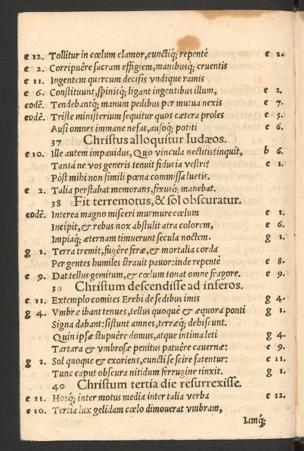 e 12. Tollitur in cœlum clamor, cunctiq; repentè e 2.
e 2. Corripuêre sacram effigiem, manibusq; cruentis
e 11. Ingentem quercum decisis vndique ramis
e 6. Constituunt, spinisq; ligant ingentibus illum, e 2.
eodē. Tendebantq; manum pedibus per mutua nexis e 7.
eodē. Triste ministerium sequitur quos cætera proles e 5.
Ausi omnes immane nefas, ausoq; potiti e 6.
37 Christus alloquitur Iudæos.
e 10. Ille autem impauidus, Quo vincula nectitis inquit, b 6.
Tantá ne vos generis tenuit fiducia vestri? e 1.
Pòst mihi non simili pœna commissa luetis.
e 2. Talia perstabat memorans, fixusq; manebat.
38 Fit terremotus, & sol obscuratur.
eodē. Interea magno misceri murmure cœlum e 1.
Incipit, & rebus nox abstulit atra colorem, e 6.
Impiaq; æternam timuerunt secula noctem. g 1.
g 1. Terra tremit, fugêre feræ, & mortalia corda
Per gentes humiles strauit pauor: inde repentè e 8.
e 9. Dat tellus gemitum, & cœlum tonat omne fragore. e 9.
39 Christum descendisse ad inferos.
e 11. Extemplo comites Erebi de sedibus imis g 4.
g 4. Vmbræ ibant tenues, tellus quoquè & æquora ponti g 1.
Signa dabant: sistunt amnes, terræq; dehiscunt.
Quin ipsæ stupuêre domus, atque intima leti g 4.
Tartara & vmbrosæ penitus patuêre cauernæ: e 9.
g 1. Sol quoque & exoriens, cuncti se scire fatentur: e 11.
Tunc caput obscura nitidum ferrugine tinxit. g 1.
40 Christum tertia die resurrexisse.
e 11. Hosq; inter motus media inter talia verba e 12.
e 10. Tertia lux gelidam cœlo dimouerat vmbram,
Iamq;